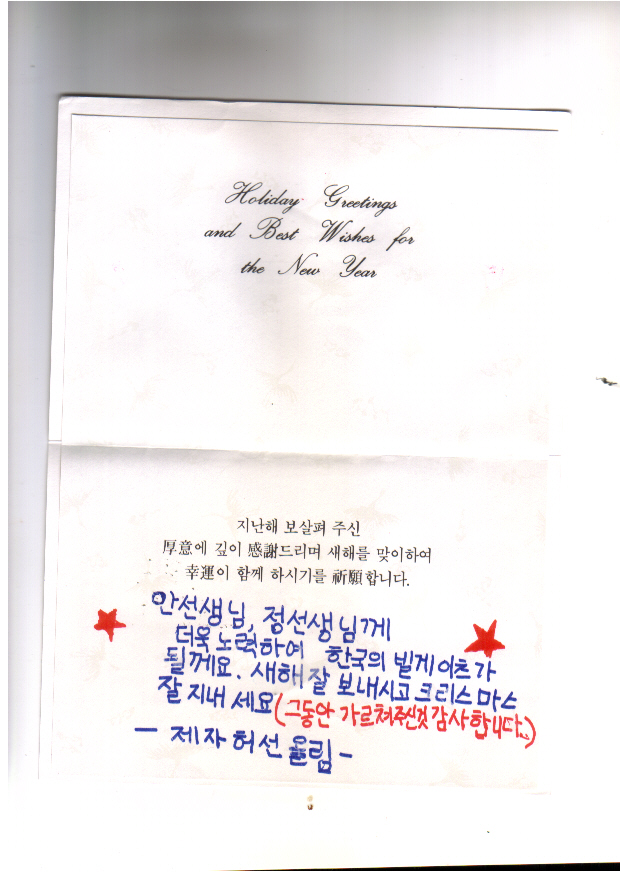 Holiday Greetings
and Best Wishes for
the New Year
지난해 보살펴 주신
厚意에 깊이 感謝드리며 새해를 맞이하여
幸運이 함께 하시기를 祈願합니다.
안선생님, 정선생님께
더욱 노력하여 한국의 빌게이츠가
될께요. 새해 잘 보내시고 크리스마스
잘 지내세요(그동안 가르쳐주신것 감사합니다.)
- 제자 허선 올림 -